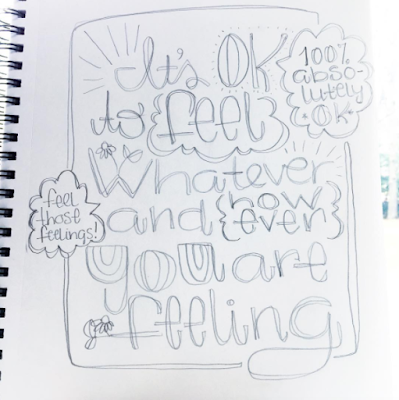 It's OK
to feel
Whatever
and how
ever
you are
feeling
100%
abso-
lutely
OK
feel
those
feelings!